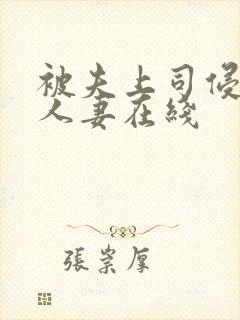 被夫上司侵
人妻在线
張崇厚